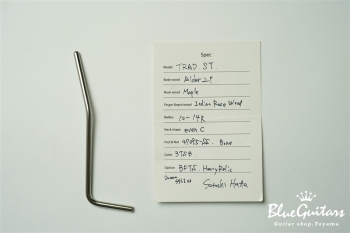 Spec
Model TRAD ST.
Body wood Alder 2P
Neck wood Maple
Finger Board wood Indian Rose Wood
Radius 10-14R
Neck shape even C
Fret & Nut Bone
Color 3TSB
Option Heavy Relic
BlueGuitars
Guitar shop. Toyama